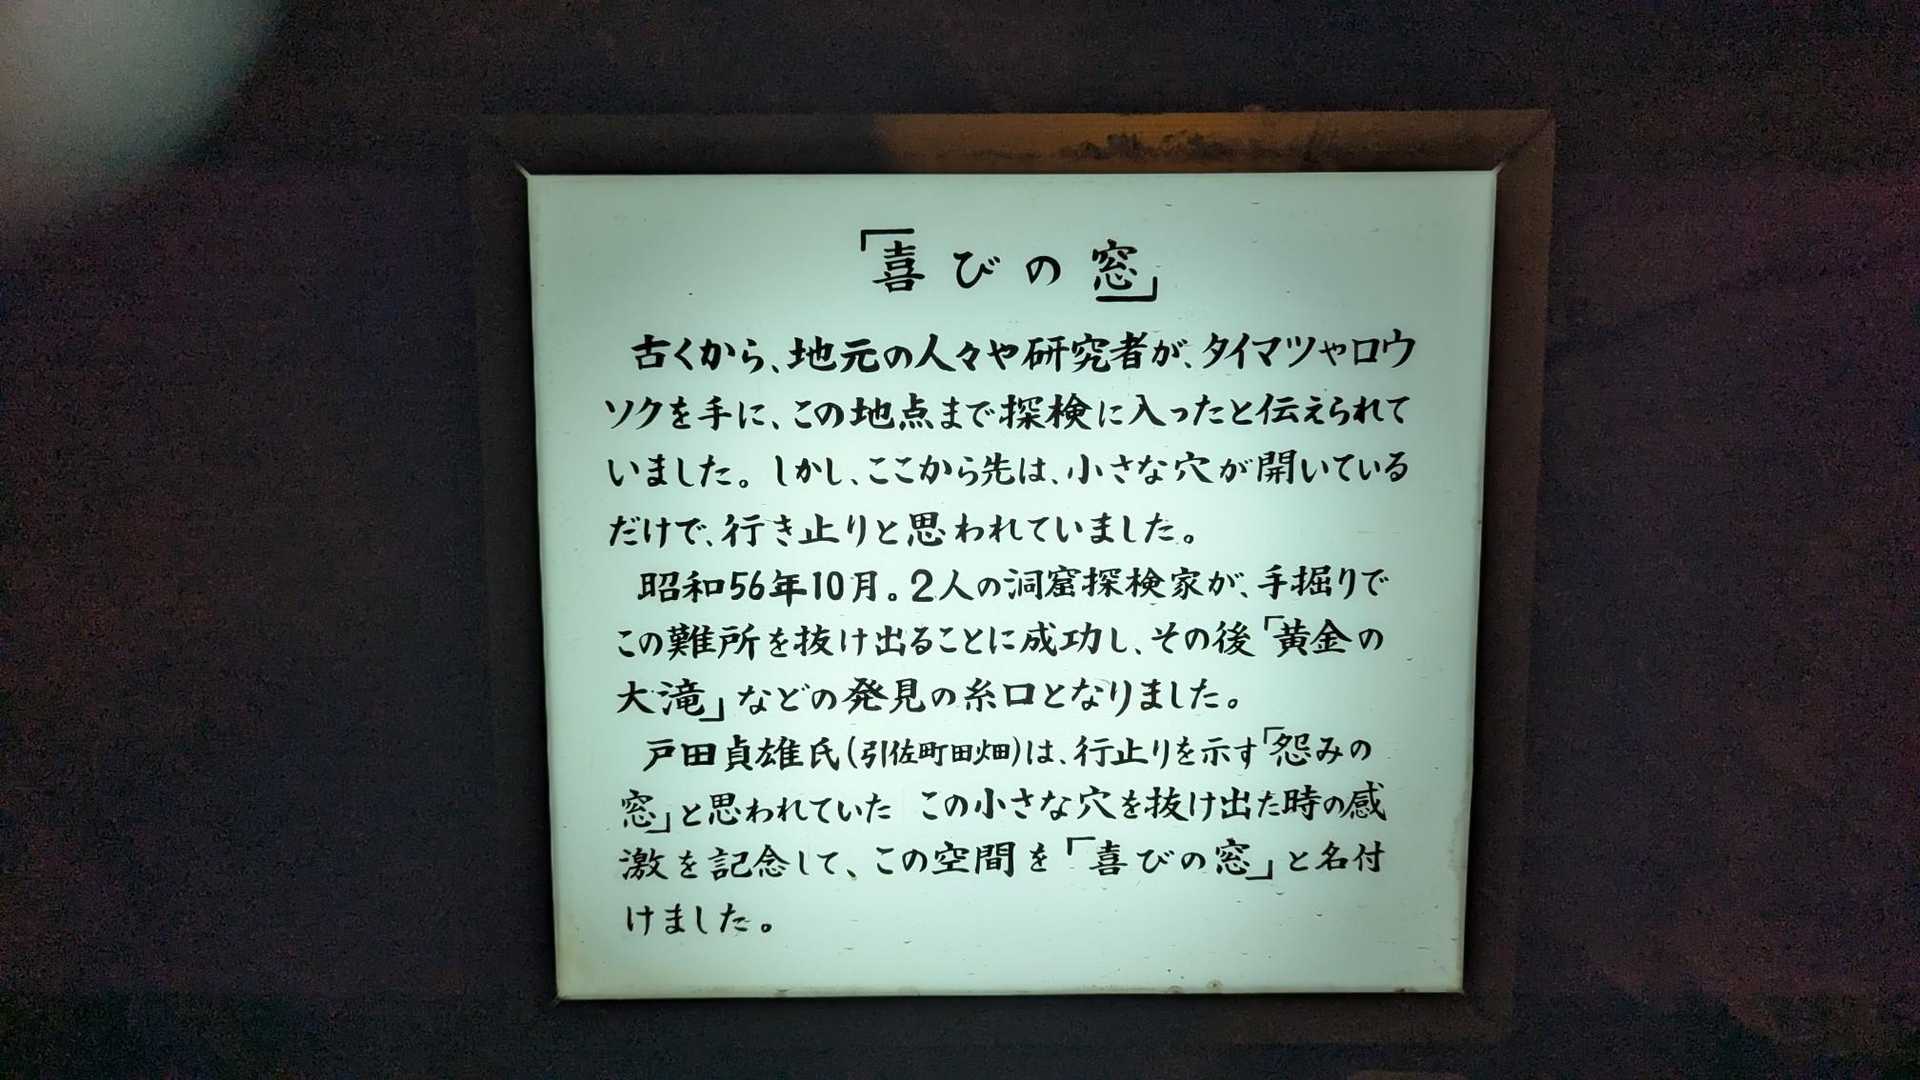 「喜びの窓」
古くから、地元の人々や研究者が、タイマツやロウ
ソクを手に、この地点まで探検に入ったと伝えられて
いました。しかし、ここから先は、小さな穴が開いている
だけで、行き止りと思われていました。
昭和56年10月。2人の洞窟探検家が、手掘りで
この難所を抜け出ることに成功し、その後「黄金の
大滝」などの発見の糸口となりました。
戸田貞雄氏(引佐町田畑)は、行止りを示す「怨みの
窓」と思われていた この小さな穴を抜け出た時の感
激を記念して、この空間を「喜びの窓」と名付
けました。